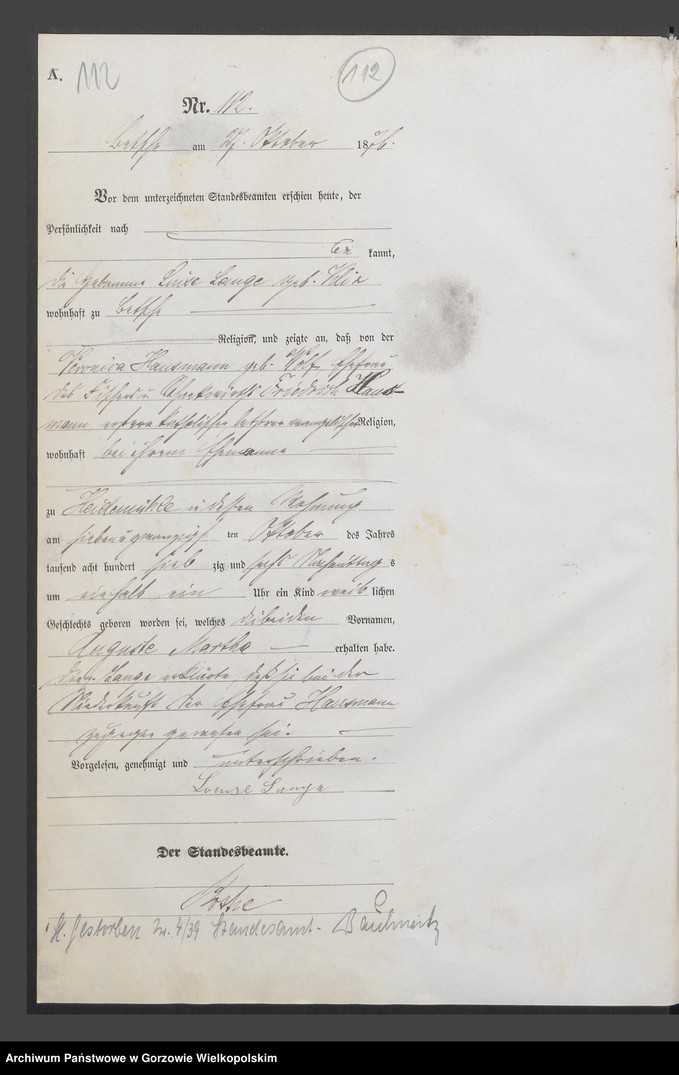 A. 112
112
Nr. 112.
Betsche am 27. Oktober 1876.
Vor dem unterzeichneten Standesbeamten erschien heute, der
Persönlichkeit nach
be kannt,
die Hebamme Luise Lange geb.
wohnhaft zu Betsche
Religion, und zeigte an, daß von der
Veronica Hausmann geb. Wolf, Ehefrau
des Fischers u. Friedrich Haus-
mann erstere katholischer letzterer evangelischer Religion,
wohnhaft bei ihrem Ehemanne
zu Heidemühle in dessen Wohnung
am sieben u zwanzigs ten Oktober des Jahres
tausend acht hundert sieb zig und sechs Nachmittag s
um ein halb ein Uhr ein Kind weib lichen
Geschlechts geboren worden sei, welches die beiden Vornamen,
Auguste Martha erhalten habe.
Die p. Lange erklärte, daß sie bei der
Niederkunft der Ehefrau Hausmann
zugegen gewesen sei.
Vorgelesen, genehmigt und unterschrieben.
Louise Lange
Der Standesbeamte.
Gestorben Nr. 4/39 Standesamt-
Archiwum Państwowe w Gorzowie Wielkopolskim